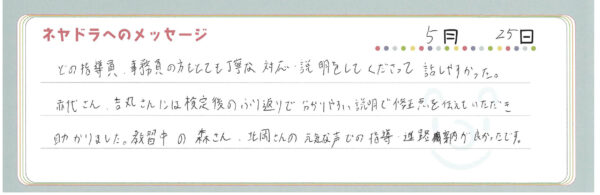 ネヤドラへのメッセージ 5月 25日
どの指導員、事務員の方もとても丁寧な対応・説明をしてくださって話しやすかった。
赤代さん、吉丸さんには検定後のふり返りで分かりやすい説明で修正点を伝えていただき
助かりました。教習中の森さん、北岡さんの元気な声での指導・進路案内が良かったです。